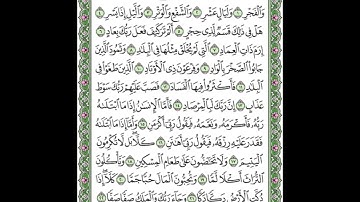 وَالْفَجْرِ ١ وَلَيَالٍ عَشْرٍ ٢ وَالشَّفْعِ وَالْوَتْرِ ٣ وَاللَّيْلِ إِذَا يَسْرِ ٤
هَلْ فِي ذَٰلِكَ قَسَمٌ لِّذِي حِجْرٍ ٥ أَلَمْ تَرَ كَيْفَ فَعَلَ رَبُّكَ بِعَادٍ ٦
إِرَمَ ذَاتِ الْعِمَادِ ٧ الَّتِي لَمْ يُخْلَقْ مِثْلُهَا فِي الْبِلَادِ ٨ وَثَمُودَ الَّذِينَ
جَابُوا الصَّخْرَ بِالْوَادِ ٩ وَفِرْعَوْنَ ذِي الْأَوْتَادِ ١٠ الَّذِينَ طَغَوْا فِي
الْبِلَادِ ١١ فَأَكْثَرُوا فِيهَا الْفَسَادَ ١٢ فَصَبَّ عَلَيْهِمْ رَبُّكَ سَوْطَ
عَذَابٍ ١٣ إِنَّ رَبَّكَ لَبِالْمِرْصَادِ ١٤ فَأَمَّا الْإِنسَانُ إِذَا مَا ابْتَلَاهُ
رَبُّهُ فَأَكْرَمَهُ وَنَعَّمَهُ فَيَقُولُ رَبِّي أَكْرَمَنِ ١٥ وَأَمَّا إِذَا مَا ابْتَلَاهُ
فَقَدَرَ عَلَيْهِ رِزْقَهُ فَيَقُولُ رَبِّي أَهَانَنِ ١٦ كَلَّا بَل لَّا تُكْرِمُونَ
الْيَتِيمَ ١٧ وَلَا تَحَاضُّونَ عَلَىٰ طَعَامِ الْمِسْكِينِ ١٨ وَتَأْكُلُونَ
التُّرَاثَ أَكْلًا لَّمًّا ١٩ وَتُحِبُّونَ الْمَالَ حُبًّا جَمًّا ٢٠ كَلَّا إِذَا
دُكَّتِ الْأَرْضُ دَكًّا دَكًّا ٢١ وَجَاءَ رَبُّكَ وَالْمَلَكُ صَفًّا صَفًّا ٢٢